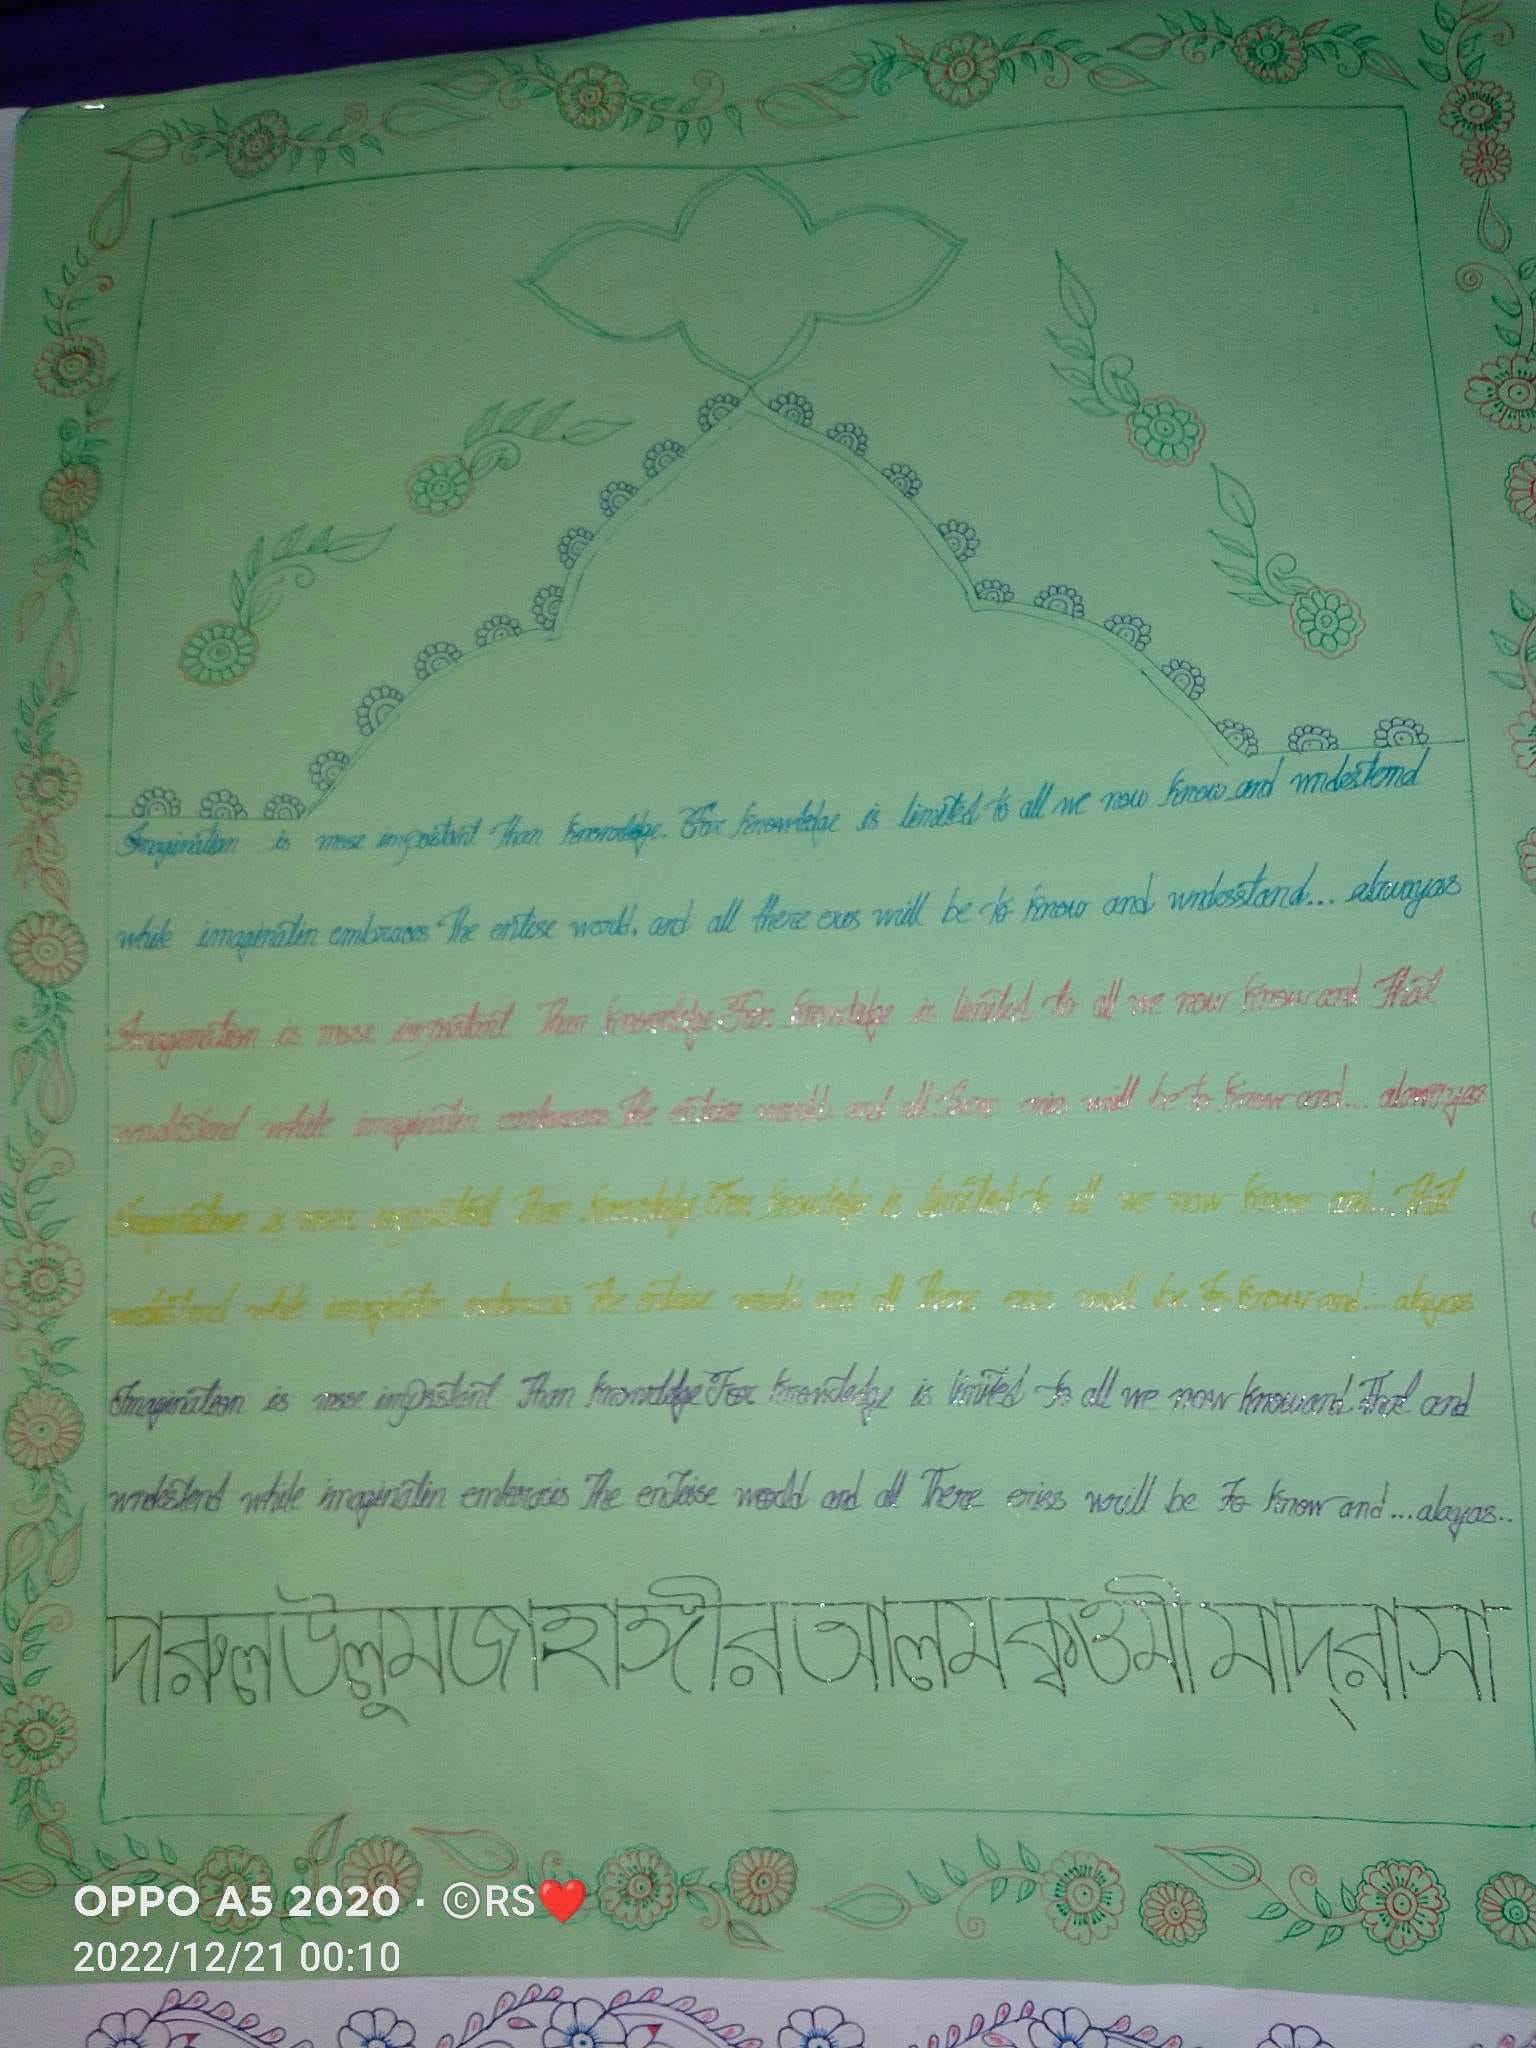 Imagination is more important Than knowledge. For knowledge is limited to all we now know and undestend
while imaginatin embraces The entise world. and all there exes will be to know and undesstand... alawyas
Imagination is more important Than knowledge For knowledge is limited to all we now know and That
undestend while imaginatin embraces The entise world and all There eries will be to know and... alawyas
Imagination is more important Than knowledge For knowledge is limited to all we now know and... That
undestend while imaginatin embraces The entise world and all There eries will be To know and... alayas
Imagination is more impostant Than knowledge For knowledge is limited to all we now know and That and
undestend while imaginatin embracis The enteise world and all There eriss will be To know and... alagas..
দারুল উলুম জাহাঙ্গীর আলম ক্বওমী মাদ্রাসা
OPPO A5 2020 · ©RS❤️
2022/12/21 00:10